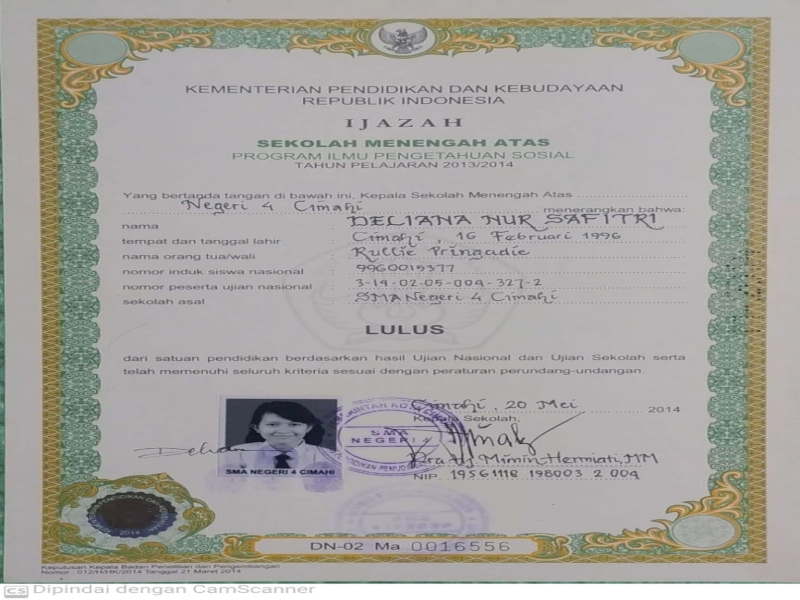 KEMENTERIAN PENDIDIKAN DAN KEBUDAYAAN
REPUBLIK INDONESIA
IJAZAH
SEKOLAH MENENGAH ATAS
PROGRAM ILMU PENGETAHUAN SOSIAL
TAHUN PELAJARAN 2013/2014
Yang bertanda tangan di bawah ini, Kepala Sekolah Menengah Atas
Negeri 4 Cimahi menerangkan bahwa:
nama DELIANA NUR SAFITRI
tempat dan tanggal lahir Cimahi, 16 Februari 1996
nama orang tua/wali Rullie Pringadie
nomor induk siswa nasional 9960015377
nomor peserta ujian nasional 3-14-02-05-004-327-2
sekolah asal SMA Negeri 4 Cimahi
LULUS
dari satuan pendidikan berdasarkan hasil Ujian Nasional dan Ujian Sekolah serta
telah memenuhi seluruh kriteria sesuai dengan peraturan perundang-undangan.
Cimahi, 20 Mei 2014
Kepala Sekolah,
SMA
NEGERI 4
SMA NEGERI 4 CIMAHI
Dra. Hj. Mimin Hermiati, MM
NIP. 19561118 198003 2 004
2014
DN-02 Ma 0016556
Keputusan Kepala Badan Penelitian dan Pengembangan
Nomor : 012/H/HK/2014 Tanggal 21 Maret 2014
CS Dipindai dengan CamScanner